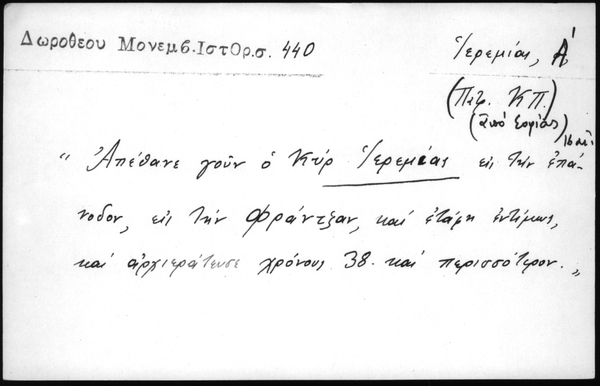 Δωροθεου Μονεμβ. Ιστορ. σ. 440
Ἱερεμίας, Α΄
(Πατρ. ΚΠ.)
(ἀπό Σοφίας)
16 αἰ.
"Ἀπέθανε γοῦν ὁ Κὺρ Ἱερεμίας εἰς τὴν ἐπά-
νοδον, εἰς τὴν Φράντζαν, καὶ ἐτάφη ἐντίμως,
καὶ ἀρχιεράτευσε χρόνους 38. καὶ περισσότερον."